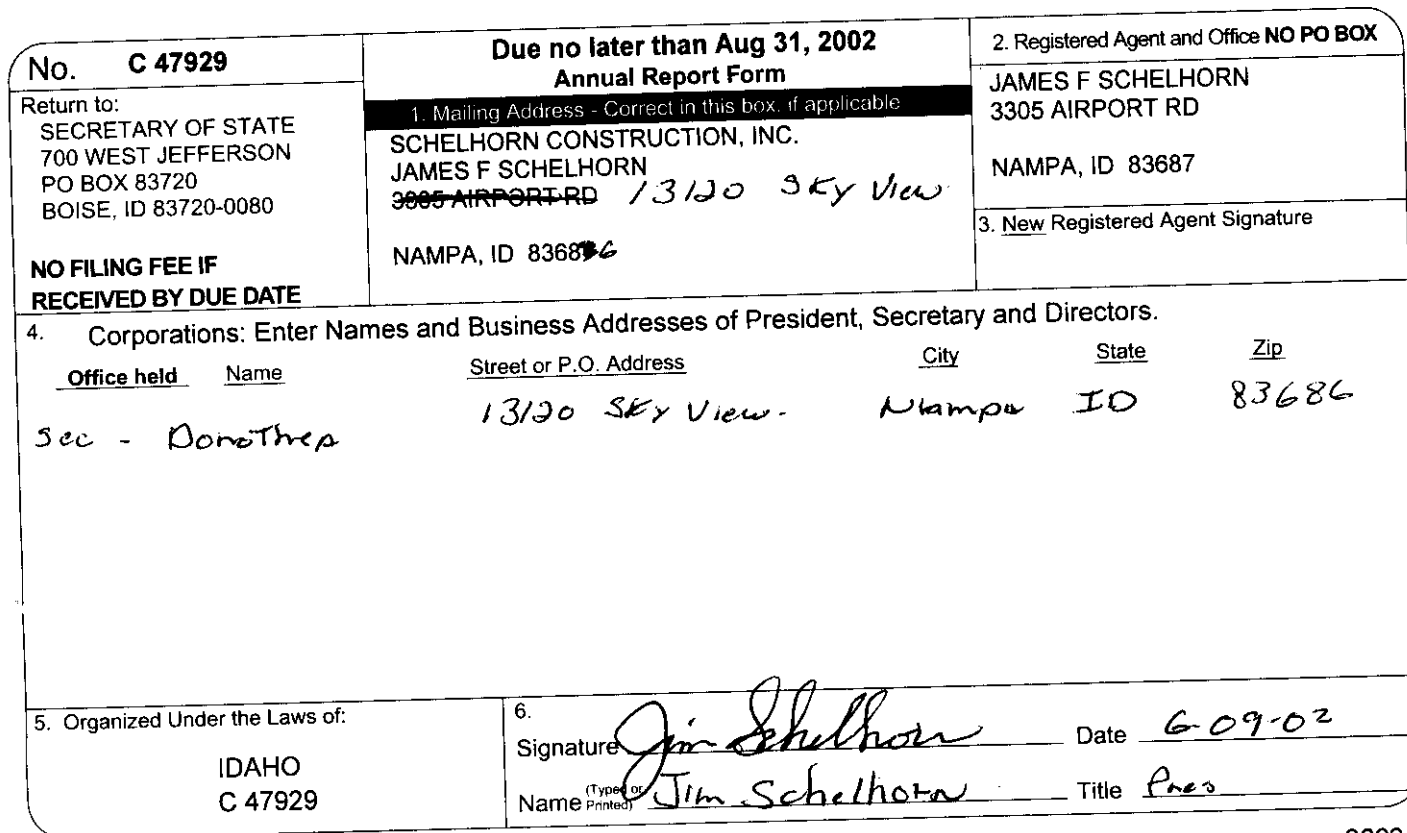 No. C 47929
Return to:
SECRETARY OF STATE
700 WEST JEFFERSON
PO BOX 83720
BOISE, ID 83720-0080
NO FILING FEE IF
RECEIVED BY DUE DATE
Due no later than Aug 31, 2002
Annual Report Form
1. Mailing Address - Correct in this box, if applicable
SCHELHORN CONSTRUCTION, INC.
JAMES F SCHELHORN
3305 AIRPORT RD 13120 Sky View
NAMPA, ID 83686
2. Registered Agent and Office NO PO BOX
JAMES F SCHELHORN
3305 AIRPORT RD
NAMPA, ID 83687
3. New Registered Agent Signature
4. Corporations: Enter Names and Business Addresses of President, Secretary and Directors.
Office held Name Street or P.O. Address City State Zip
Sec - 13120 SKy View. Nampa ID 83686
5. Organized Under the Laws of:
IDAHO
C 47929
6.
Signature Jim Schelhorn Date 6-09-02
Name (Typed or Printed) Jim Schelhorn Title Pres